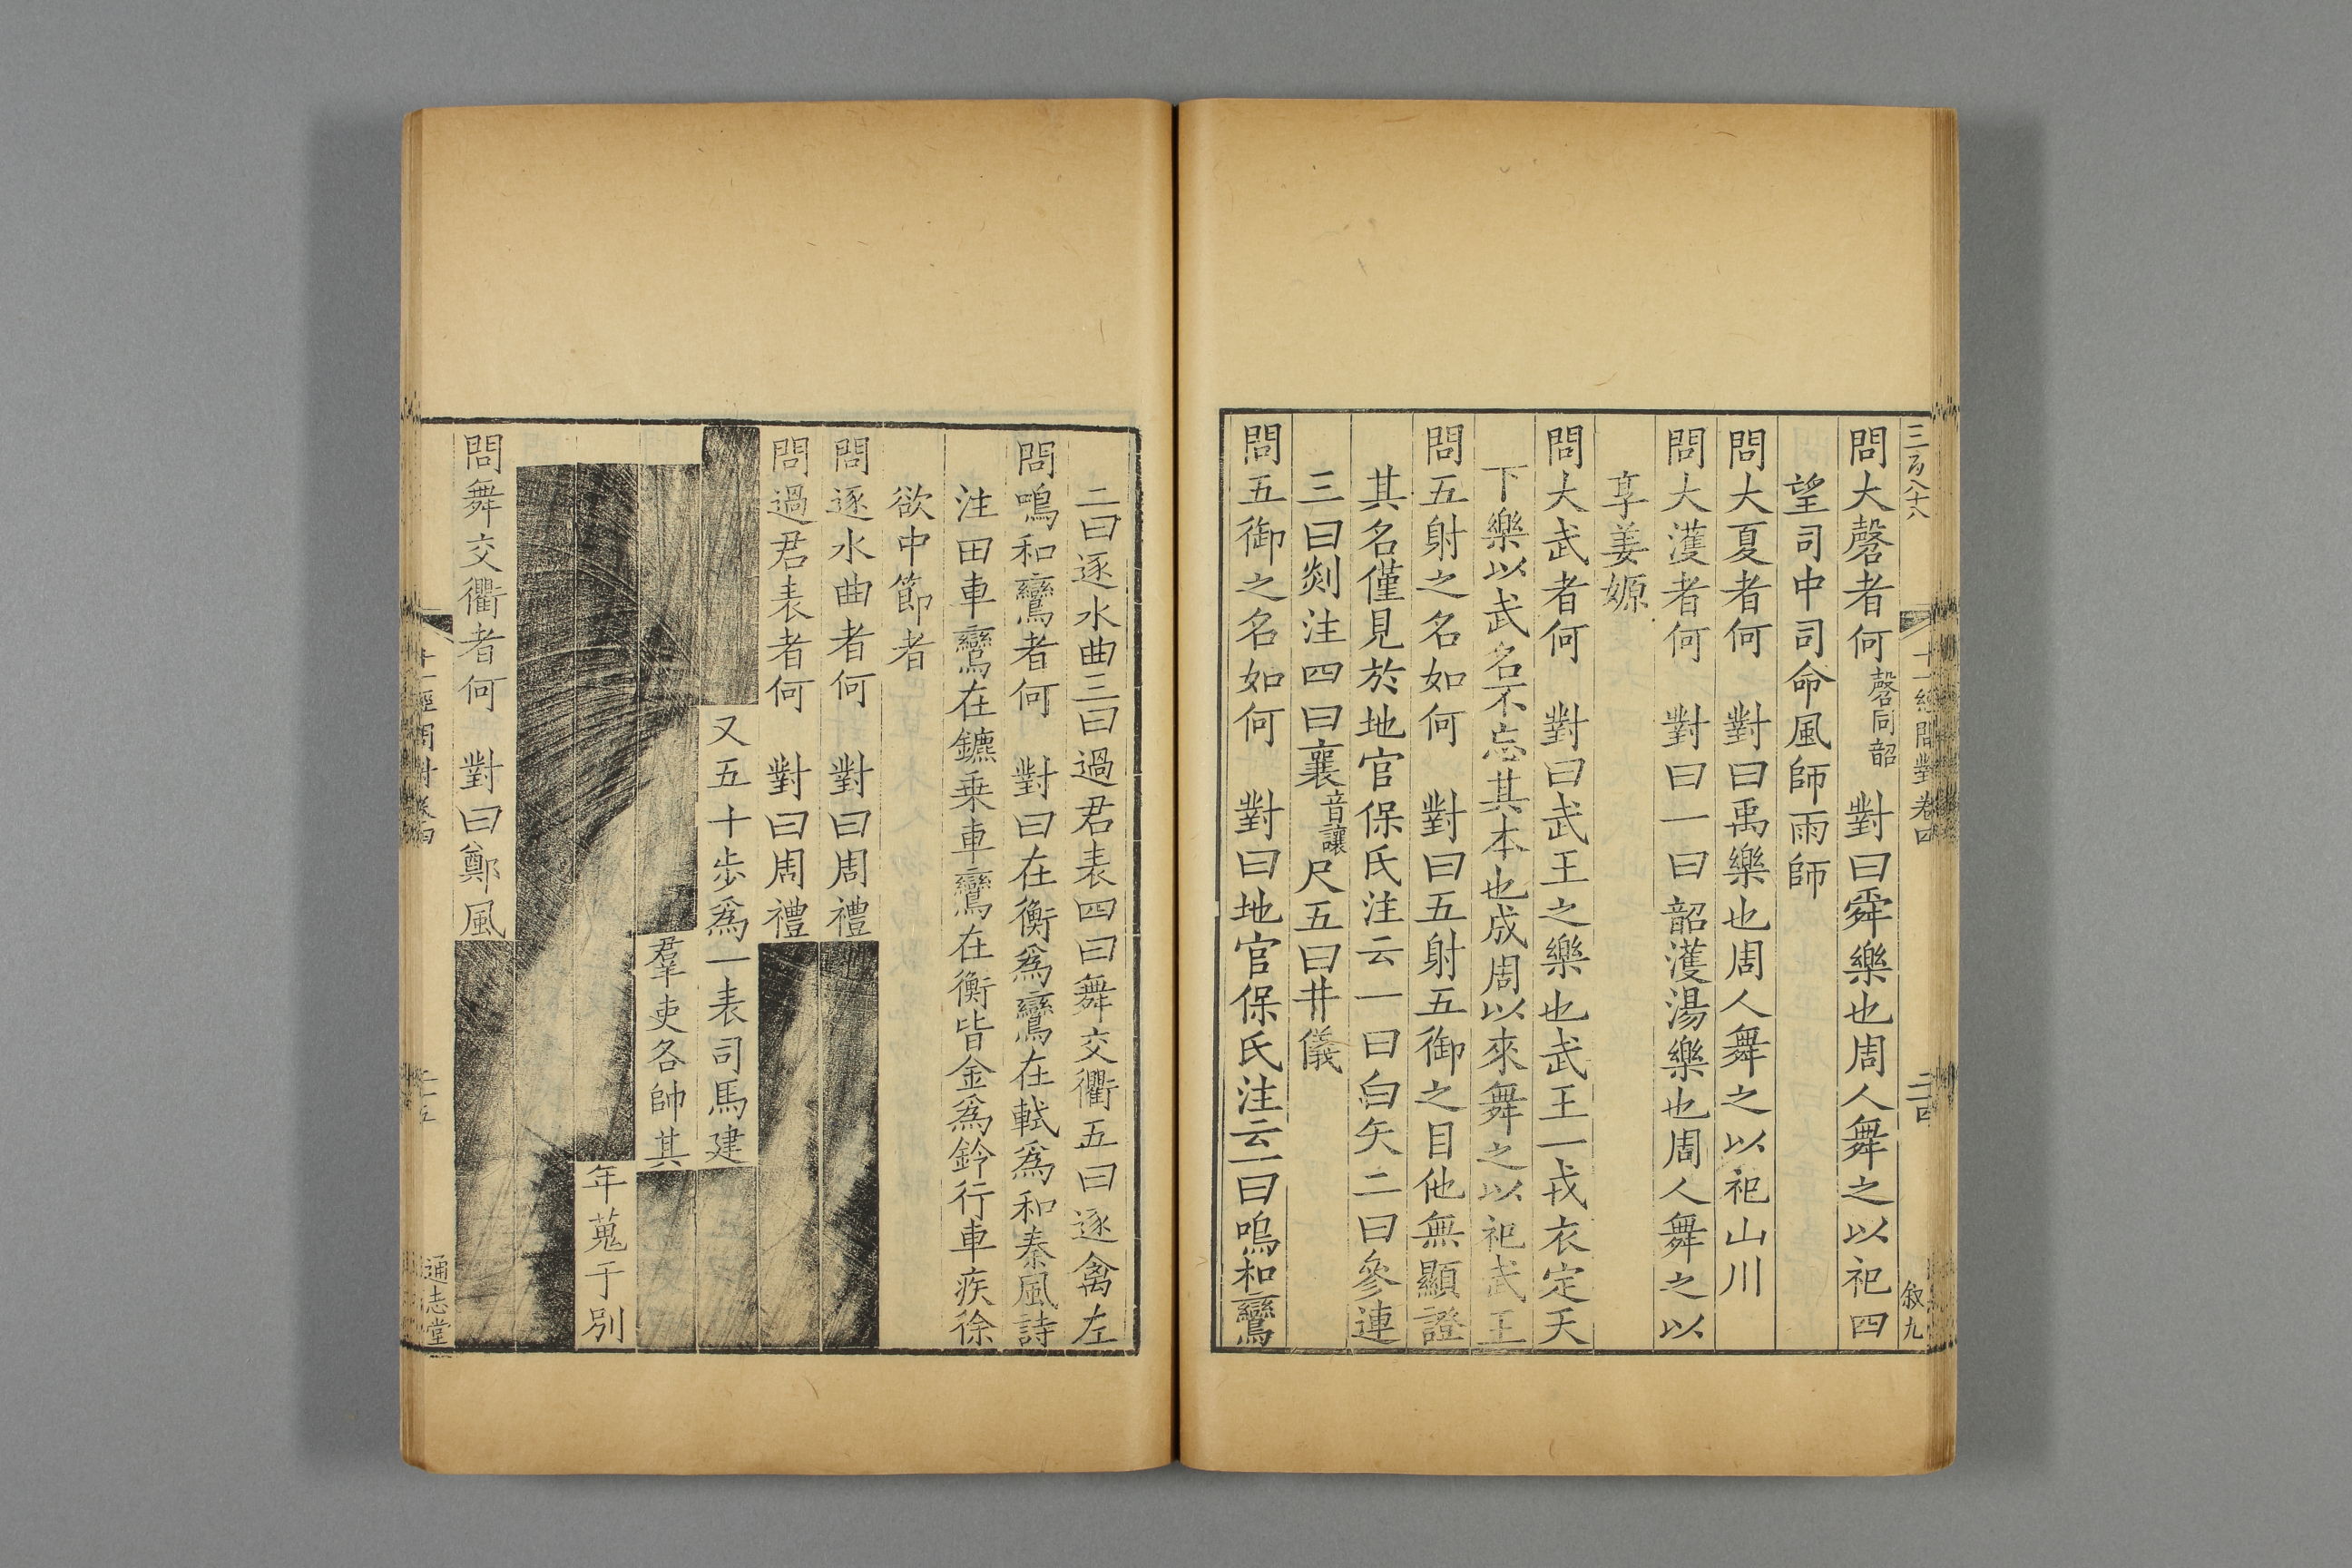 三百八十八
十一經問對卷四
二十四
叙九
問大磬者何磬同韶 對曰舜樂也周人舞之以祀四
望司中司命風師雨師
問大夏者何 對曰禹樂也周人舞之以祀山川
問大濩者何 對曰一曰韶濩湯樂也周人舞之以
享姜嫄
問大武者何 對曰武王之樂也武王一戎衣定天
下樂以武名不忘其本也成周以來舞之以祀武王
問五射之名如何 對曰五射五御之目他無顯證
其名僅見於地官保氏注云一曰白矢二曰參連
三曰剡注四曰襄音讓尺五曰井儀
問五御之名如何 對曰地官保氏注云一曰鳴和鸞
二曰逐水曲三曰過君表四曰舞交衢五曰逐禽左
問鳴和鸞者何 對曰在衡爲鸞在軾爲和秦風詩
注田車鸞在鑣乗車鸞在衡皆金爲鈴行車疾徐
欲中節者
問逐水曲者何 對曰周禮
問過君表者何 對曰周禮
又五十歩爲一表司馬建
羣吏各帥其
年蒐于別
問舞交衢者何 對曰鄭風
十一經問對卷四
二十五
通志堂